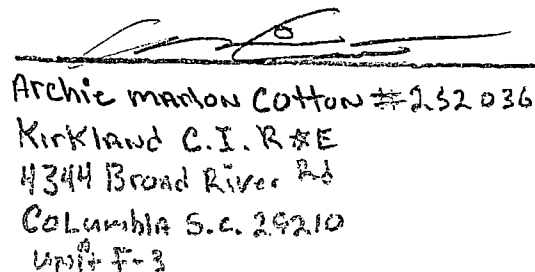 Archie marlon Cotton #252036
Kirkland C.I. R&E
4344 Broad River Rd
Columbia S.C. 29210
Unit F-3